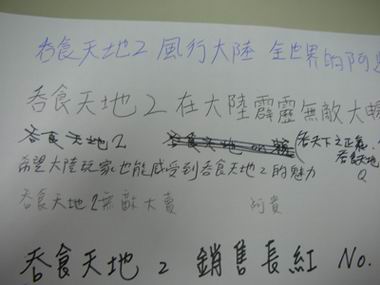 吞食天地2 風行大陸 全世界的阿
吞食天地2 在大陸霹靂無敵大暢
吞食天地2
吞食天地
希望大陸玩家也能感受到吞食天地2的魅力
吞食天地2無敵大賣 阿貴
吞食天地 2 銷售長紅 No.